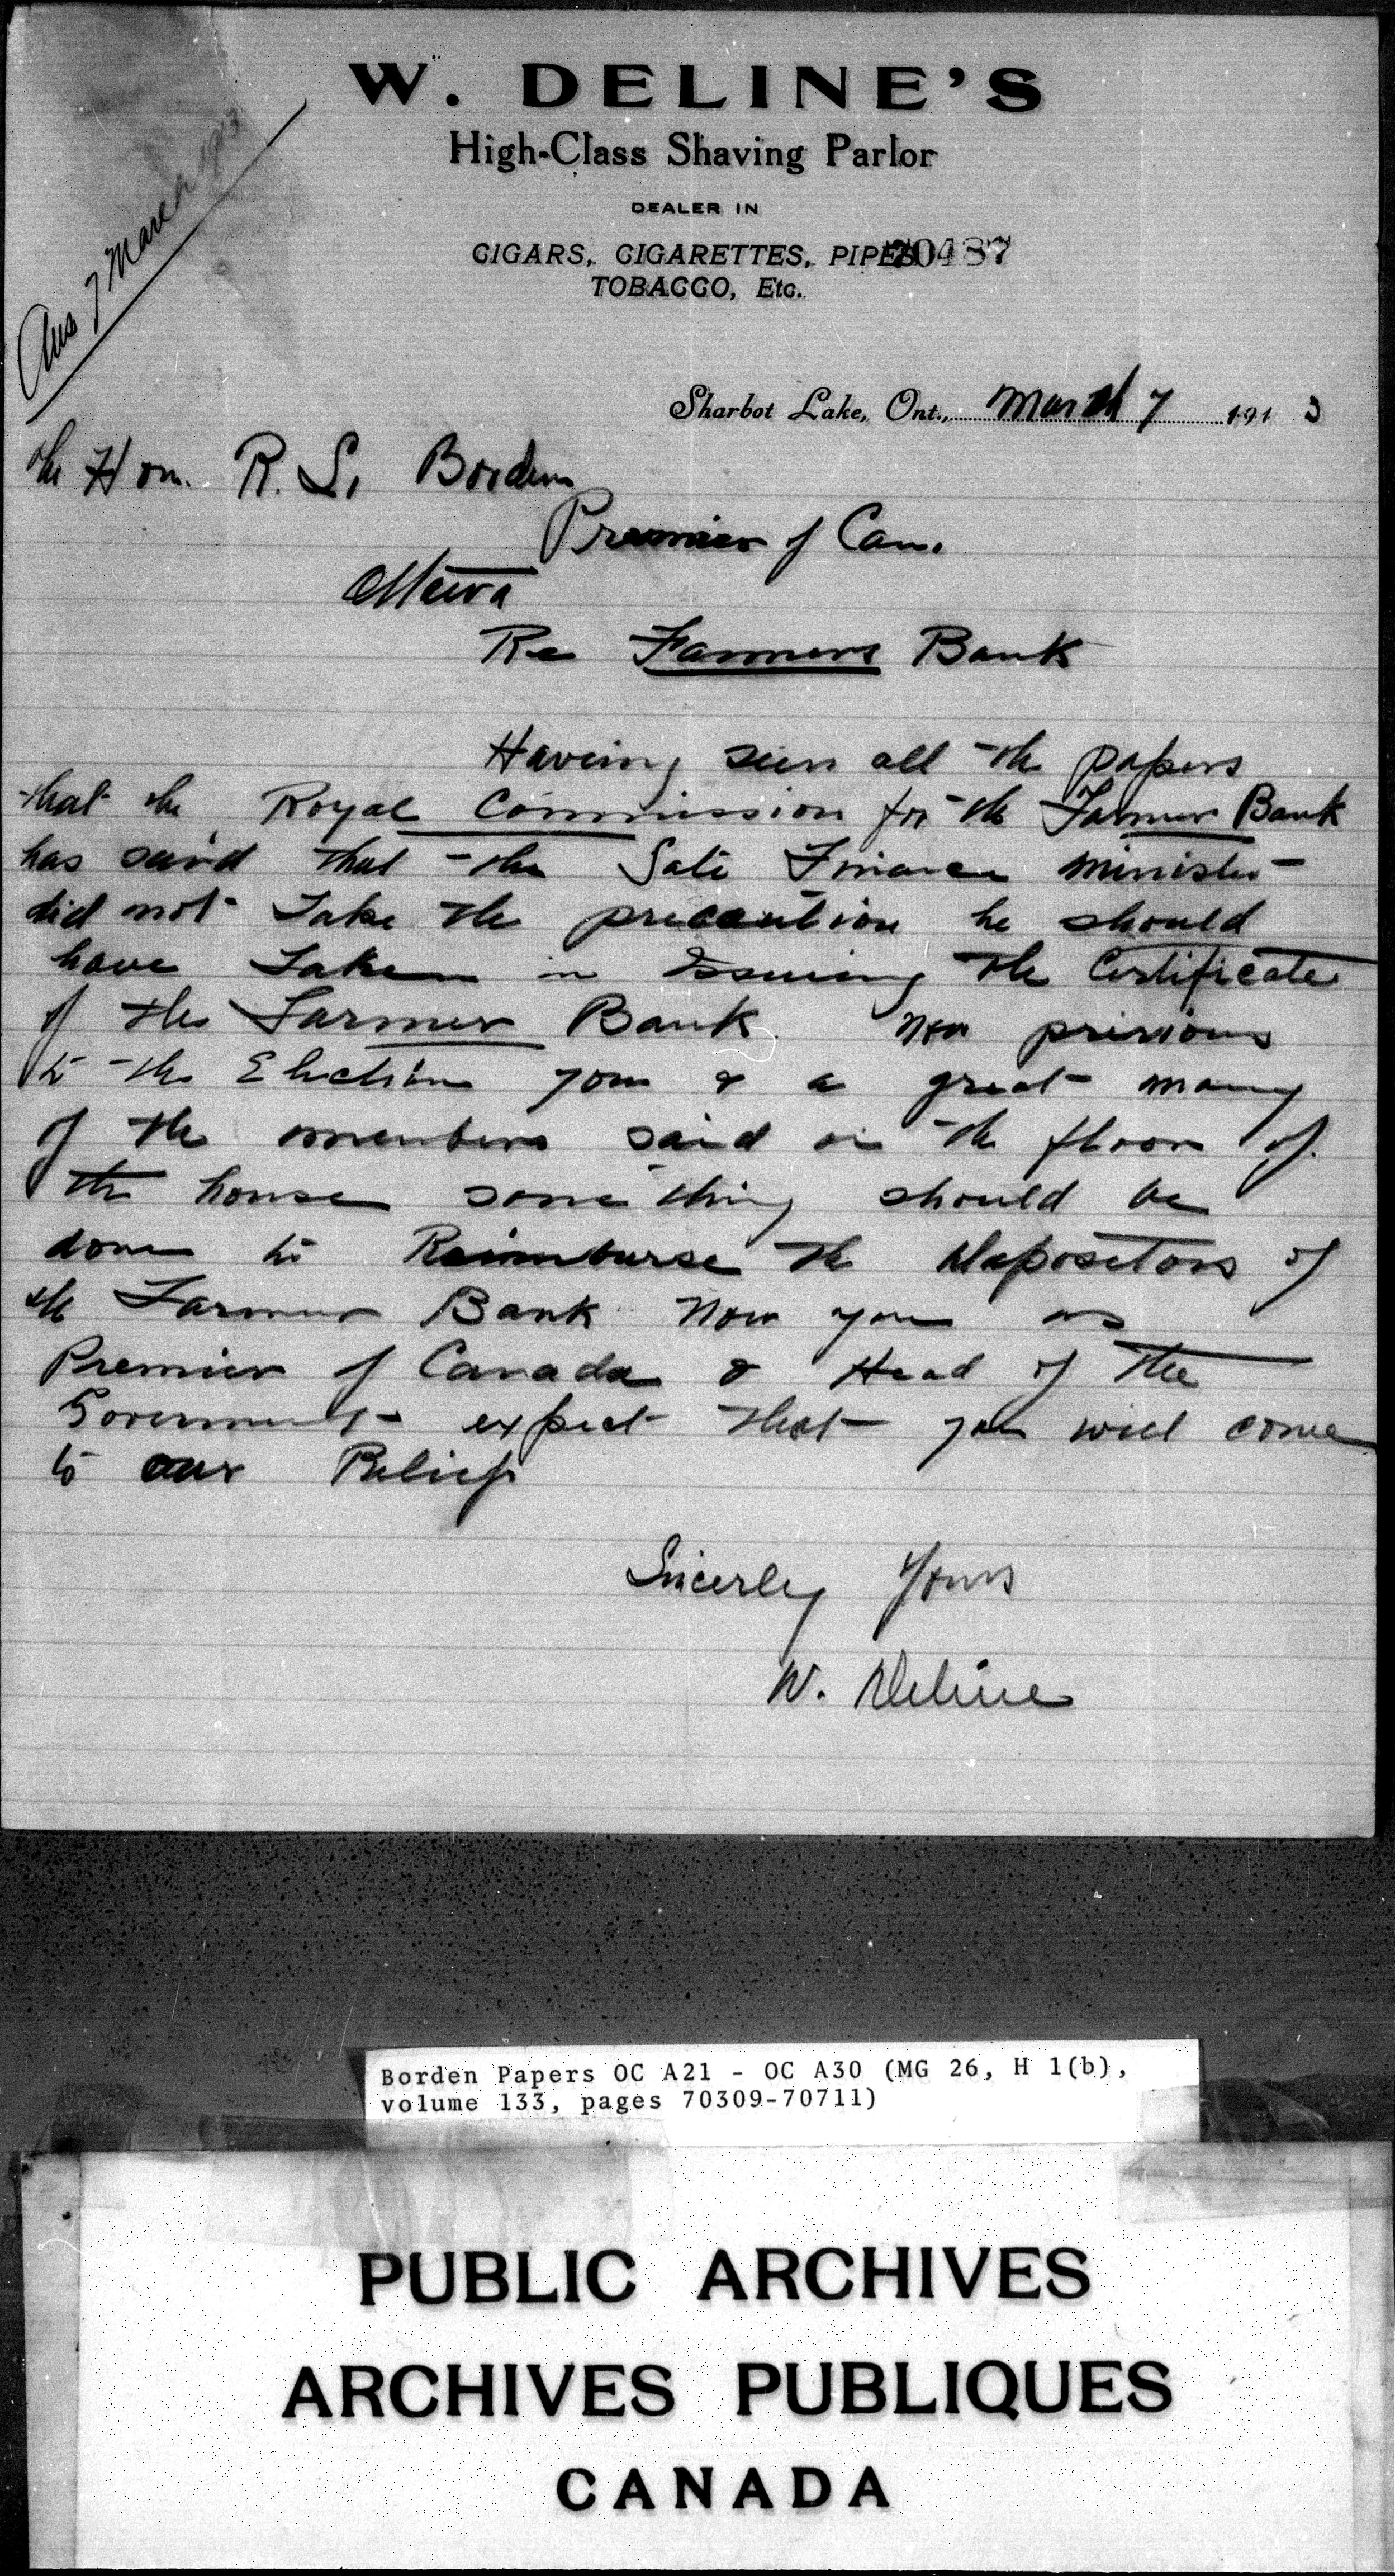 W. DELINE'S
High-Class Shaving Parlor
DEALER IN
CIGARS, CIGARETTES, PIPES 70487
TOBACCO, Etc.
Ans 7 March 1913
Sharbot Lake, Ont., March 7 1913
the Hon. R. L. Borden
Premier of Can.
Ottawa
Re Farmers Bank
Haveing seen all the papers
that the Royal Commission for the Farmer Bank
has said that the Late Finance Minister
did not Take the precaution he should
have Taken in Issuing the Certificate
of the Farmer Bank. Now privious
to the Election you & a great many
of the members said on the floor of
the house some thing should be
done to Reimburse the Depositors of
the Farmer Bank Now you as
Premier of Canada & Head of the
Government expect that you will come
to our Relief
Sincerley Yours
W. Deline
Borden Papers OC A21 - OC A30 (MG 26, H 1(b),
volume 133, pages 70309-70711)
PUBLIC ARCHIVES
ARCHIVES PUBLIQUES
CANADA